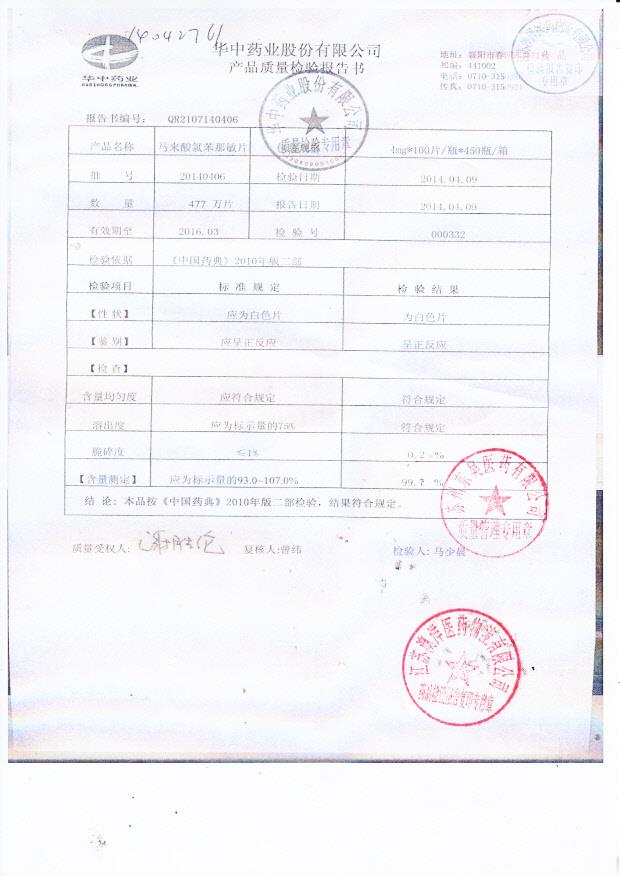 14042761
华中药业
HUAZHONG PHARM.
华中药业股份有限公司
产品质量检验报告书
邮编: 441002
电话: 0710-3150
传真: 0710-3150
华中药业股份有限公司
质量检验专用章
报告书编号: QR2107140406
产品名称 马来酸氯苯那敏片 4mg*100片/瓶*450瓶/箱
批 号 20140406 检验日期 2014.04.09
数 量 477 万片 报告日期 2014.04.09
有效期至 2016.03 检 验 号 000332
检验依据 《中国药典》2010年版二部
检验项目 标 准 规 定 检 验 结 果
【性 状】 应为白色片 为白色片
【鉴 别】 应呈正反应 呈正反应
【检 查】
含量均匀度 应符合规定 符合规定
溶出度 应为标示量的75% 符合规定
脆碎度 ≤1% 0.2 %
【含量测定】 应为标示量的93.0~107.0% 99. %
结 论: 本品按《中国药典》2010年版二部检验, 结果符合规定。
苏州东吴医药有限公司
质量管理专用章
质量受权人: 复核人:曾纬 检验人: 马少晨
江苏澳洋医药物流有限公司